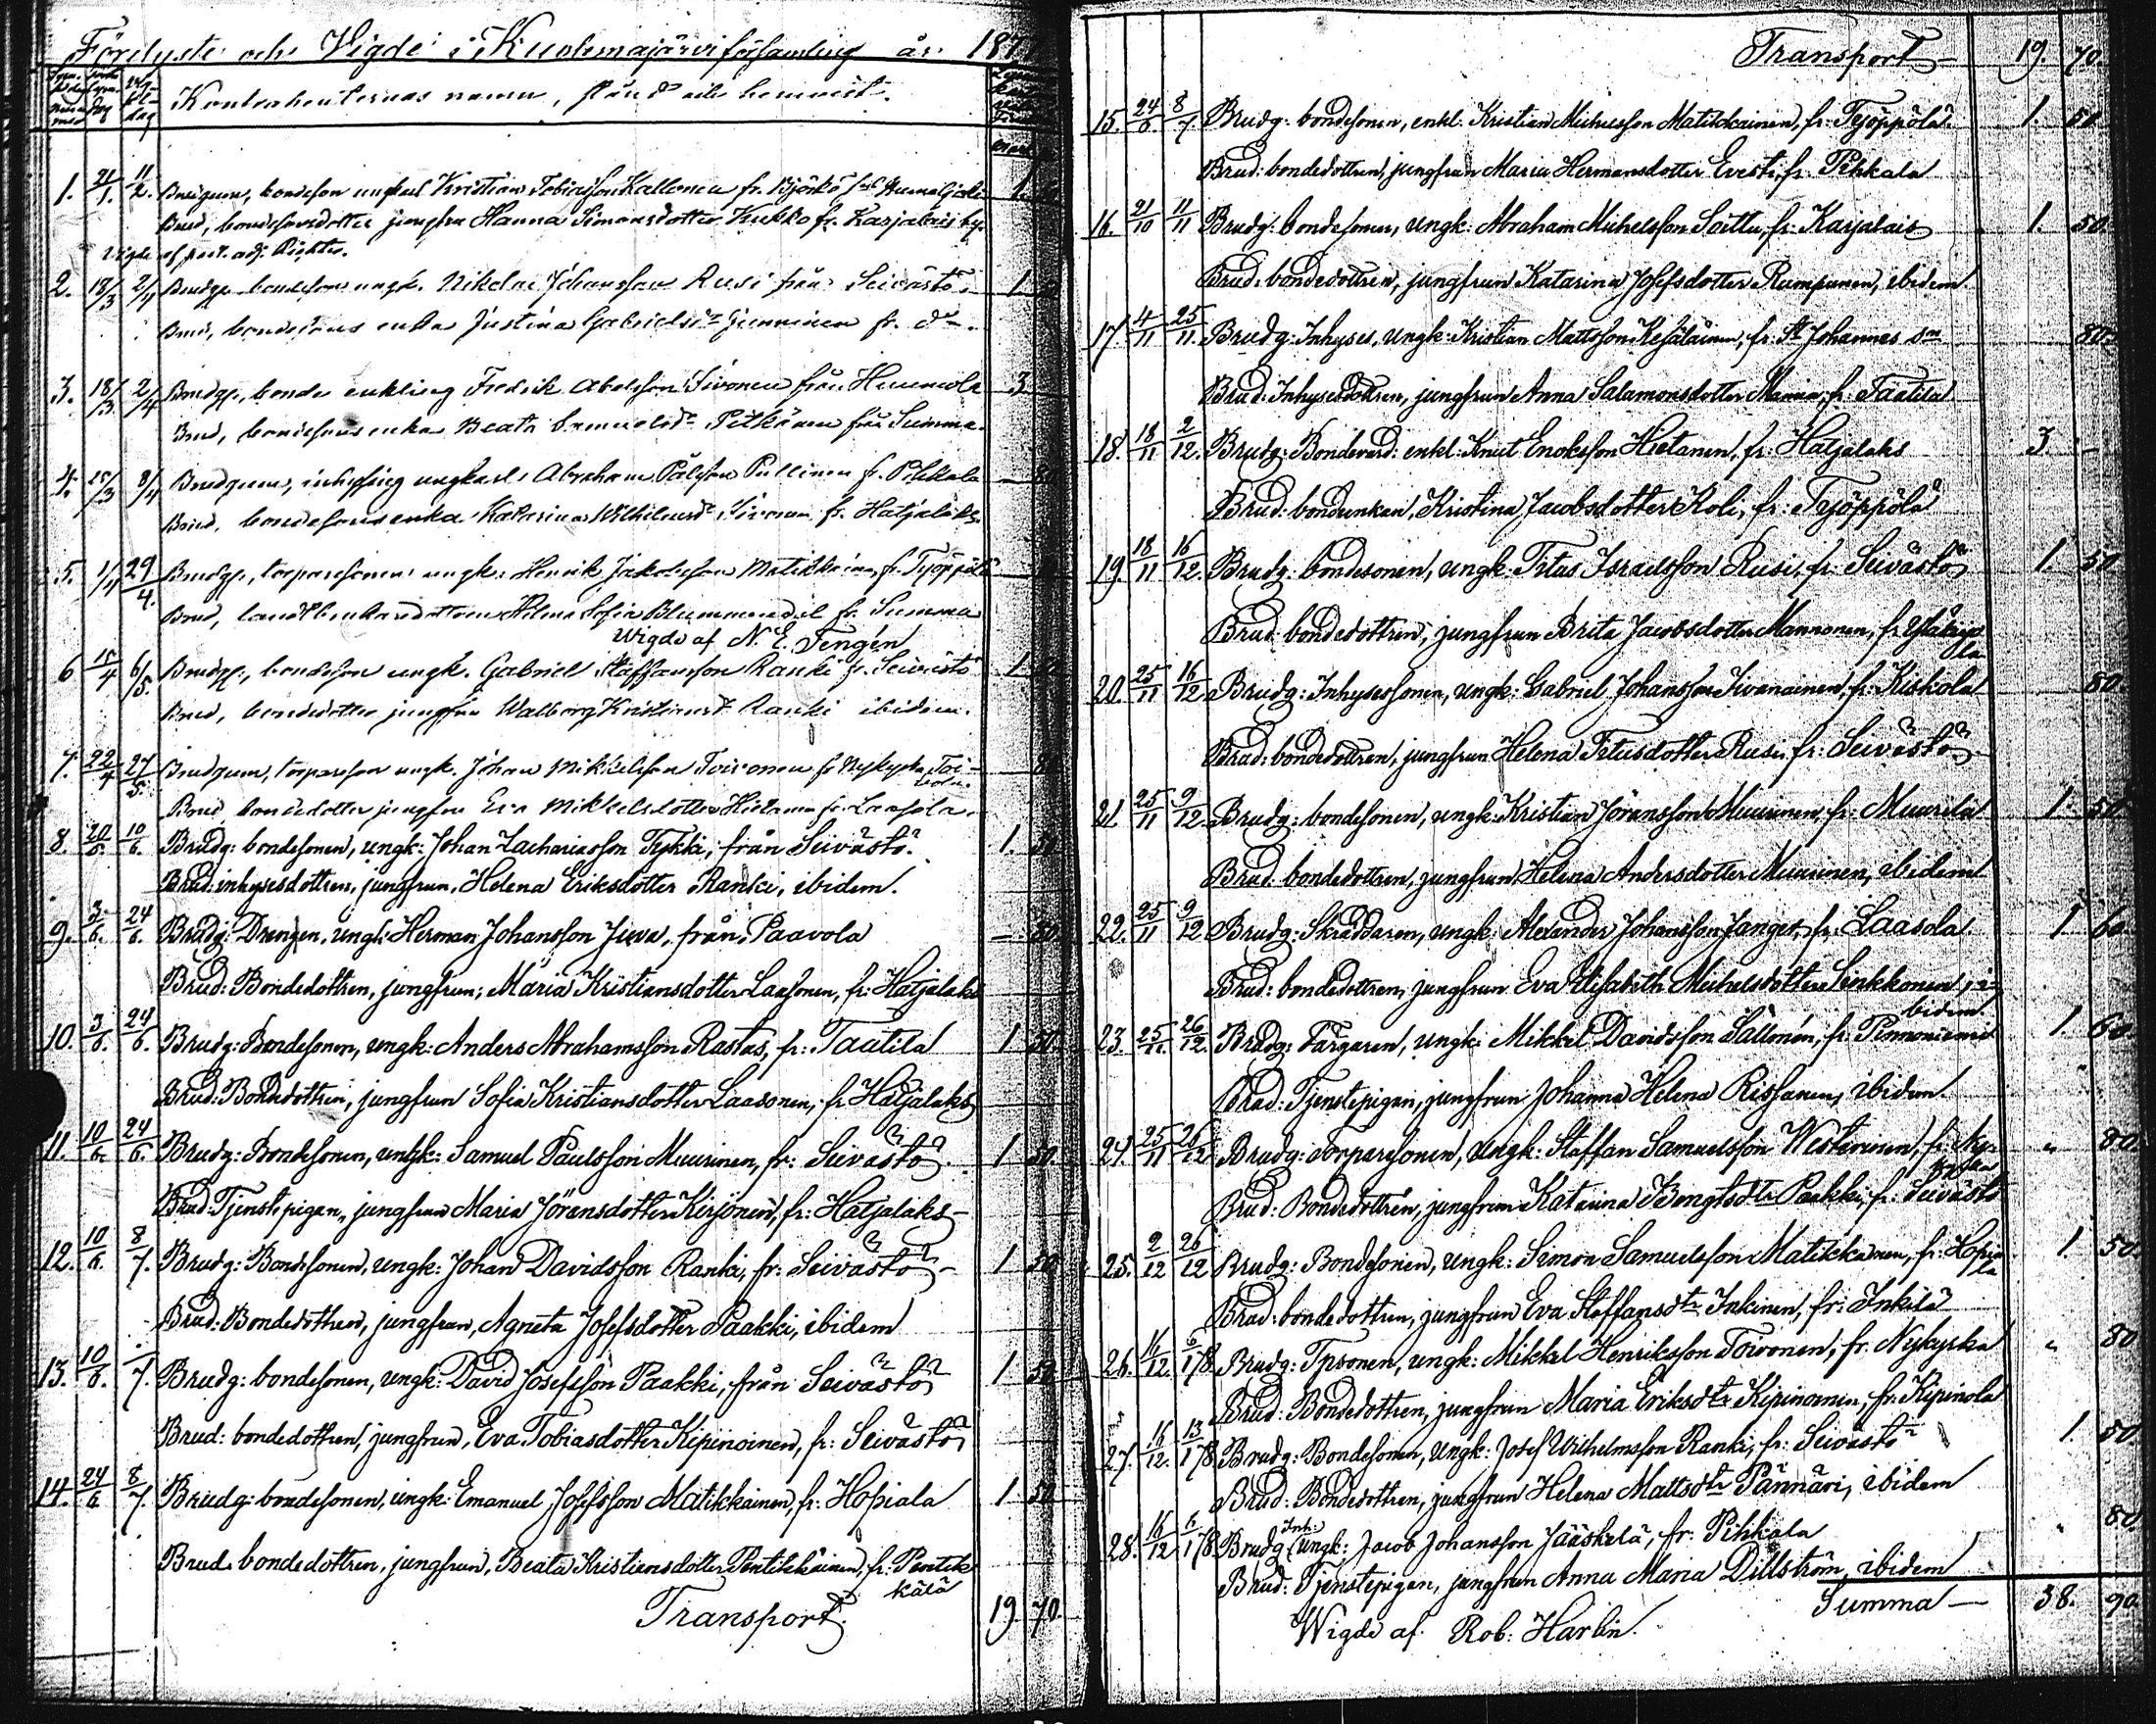 Förelyste och Vigde i Kuolemajärvi församling år 187
Kontrahenternas namn, stånd och hemvist.
1. 21/1. 11/2. Brudgum, bondeson ungkarl Kristian Tobiasson Kallonen fr. Björkö 1.
Brud, bondesonsdotter jungfru Hanna Simonsdotter Kukko fr. Karjalais by.
Vigde af past. adj. Richter.
2. 18/3 2/4 Brudg. bondeson ungk. Nikolai Johansson Rusi från Seivästö 1
Brud, bondesons enka Justina Gabrielsdr Junninen fr. do
3. 18/3. 2/4 Brudg., bonde enkling Fredrik Abelsson Sivonen från Hummola 3
Brud, bondesons enka Beata Samuelsdr Pitkänen från Summa.
4. 25/3 8/4 Brudgum, inhysing ungkarl Abraham Pålsson Pullinen fr. Pihkala 80
Brud, bondesonsenka Katarina Wilhelmsdr Sivonen fr. Hatjalaks.
5. 1/4 29/4. Brudg., torparesonen ungk. Henrik Jakobsson Matikkainen fr. Työppölä
Brud, Helena Sofia fr. Summa
Vigde af N. E. Tengén
6 15/4 6/5. Brudg., bondeson ungk. Gabriel Staffansson Ranki fr. Seivästö 1
Brud, bondedotter jungfru Walborg Kristiansdr Ranki ibidem.
7. 22/4 27/5 Brudgum, torpareson ungk. Johan Mikkelsson Toivonen fr. Nykyrka,
Brud bondedotter jungfru Eva Mikkelsdotter Hietanen fr. Laasola.
8. 20/5. 10/6. Brudg: bondesonen, ungk: Johan Zachariasson Tykki, från Seivästö. 1. 50
Brud: inhysesdottren, jungfrun, Helena Eriksdotter Ranki, ibidem.
9. 3/6. 24/6. Brudg: Drengen, ungk: Herman Johansson Juva, från, Paavola — 80.
Brud: Bondedottren, jungfrun, Maria Kristiansdotter Laasonen, fr: Hatjalaks
10. 3/6. 24/6. Brudg: Bondesonen, ungk: Anders Abrahamsson Rastas, fr: Taatila 1 50.
Brud: Bondedottren, jungfrun Sofia Kristiansdotter Laasonen, fr Hatjalaks
11. 10/6. 24/6. Brudg: Bondesonen, ungk: Samuel Paulsson Muurinen, fr: Seivästö. 1 50.
Brud: Tjenstepigan, jungfrun Maria Jöransdotter Kirjonen, fr: Hatjalaks—
12. 10/6. 8/7. Brudg: Bondesonen, ungk: Johan Davidsson Ranki, fr: Seivästö— 1 50
Brud: Bondedottren, jungfrun, Agneta Josefsdotter Paakki, ibidem
13. 10/6. /7. Brudg: bondesonen, ungk: David Josefsson Paakki, från Seivästö 1 50
Brud: bondedottren, jungfrun, Eva Tobiasdotter Kipinoinen, fr: Seivästö
14. 24/6 8/7 Brudg: bondesonen, ungk: Emanuel Josefsson Matikkainen, fr: Hopiala 1 50
Brud: bondedottren, jungfrun, Beata Kristiansdotter Pentikkäinen, fr: Pentik
kälä
Transport. 19 70.
Transport— 19. 70.
15. 24/6. 8/7 Brudg: bondesonen, enkl: Kristian Michelsson Matikkainen, fr: Työppölä 1. 50
Brud: bondedottren, jungfrun Maria Hermansdotter Evesti, fr: Pihkala
16. 21/10 11/11 Brudg: bondesonen, ungk: Abraham Michelsson Soittu, fr: Karjalais 1. 50.
Brud: bondedottren, jungfrun Katarina Josefsdotter Rumpunen, ibidem
17. 4/11 25/11. Brudg: Inhyses, ungk: Kristian Mattsson Kesäläinen, fr: St Johannes sn 80.
Brud: Inhysesdottren, jungfrun Anna Salamonsdotter fr: Taatila
18. 18/11 2/12. Brudg: Bondevärd: enkl: Knut Enoksson Hietanen, fr: Hatjalaks 3. —
Brud: bondeenkan, Kristina Jacobsdotter Koli, fr: Työppölä
19. 18/11 16/12. Brudg: bondesonen, ungk: Titus Israelsson Rusi, fr: Seivästö 1. 50
Brud: bondedottren, jungfrun Brita Jacobsdotter Mannonen, fr
la
20. 25/11 16/12 Brudg: Inhysessonen, ungk: Gabriel Johansson fr: Kiskola 80
Brud: bondedottren, jungfrun Helena Titusdotter Rusi, fr: Seivästö
21. 25/11 9/12 Brudg: bondesonen, ungk: Kristian Jöransson Muurinen, fr: Muurila 1. 50.
Brud: bondedottren, jungfrun Helena Andersdotter Muurinen, ibidem
22. 25/11 9/12 Brudg: Skräddaren, ungk: Alexander Johansson Janget, fr: Laasola 1 60.
Brud: bondedottren, jungfrun Eva Elisabeth Michelsdotter Sinkkonen, i-
bidem.
23. 25/11. 26/12. Brudg: Färgaren, ungk: Mikkel Davidsson Sällonén, fr: Pinnoniemi 1. 60.
Brud: Tjenstepigan, jungfrun Johanna Helena Rissanen, ibidem.
24. 25/11 26/12 Brudg: Torparesonen, ungk: Staffan Samuelsson Westerinen, fr: Ny-
kyrka " 80.
Brud: Bondedottren, jungfrun Katarina Bengtsdtr Paakki, fr: Seivästö
25. 2/12 26/12 Brudg: Bondesonen, ungk: Simon Samuelsson Matikkainen, fr: Hopia
la 1. 50.
Brud: bondedottren, jungfrun Eva Staffansdtr Inkinen, fr: Inkilä
26. 16/12. 6/1 78. Brudg: Tpsonen, ungk: Mikkel Henriksson Toivonen, fr. Nykyrka " 80
Brud: Bondedottren, jungfrun Maria Eriksdtr Kipinoinen, fr. Kipinola
27. 16/12. 13/1 78 Brudg: Bondesonen, ungk: Josef Wilhelmsson Ranki, fr: Seivästö 1. 50.
Brud: Bondedottren, jungfrun Helena Mattsdtr Pännäri, ibidem
28. 16/12 6/1 78 Brudg Inh: ungk: Jacob Johansson Jääskelä, fr: Pihkala " 80.
Brud: Tjenstepigan, jungfrun Anna Maria Dillström, ibidem
Summa — 38. 90.
Wigde af. Rob: Harlin.